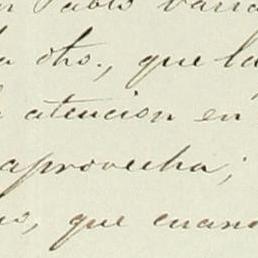 Pablo
dho., que la
atencion en
aprovecha;
que cuand